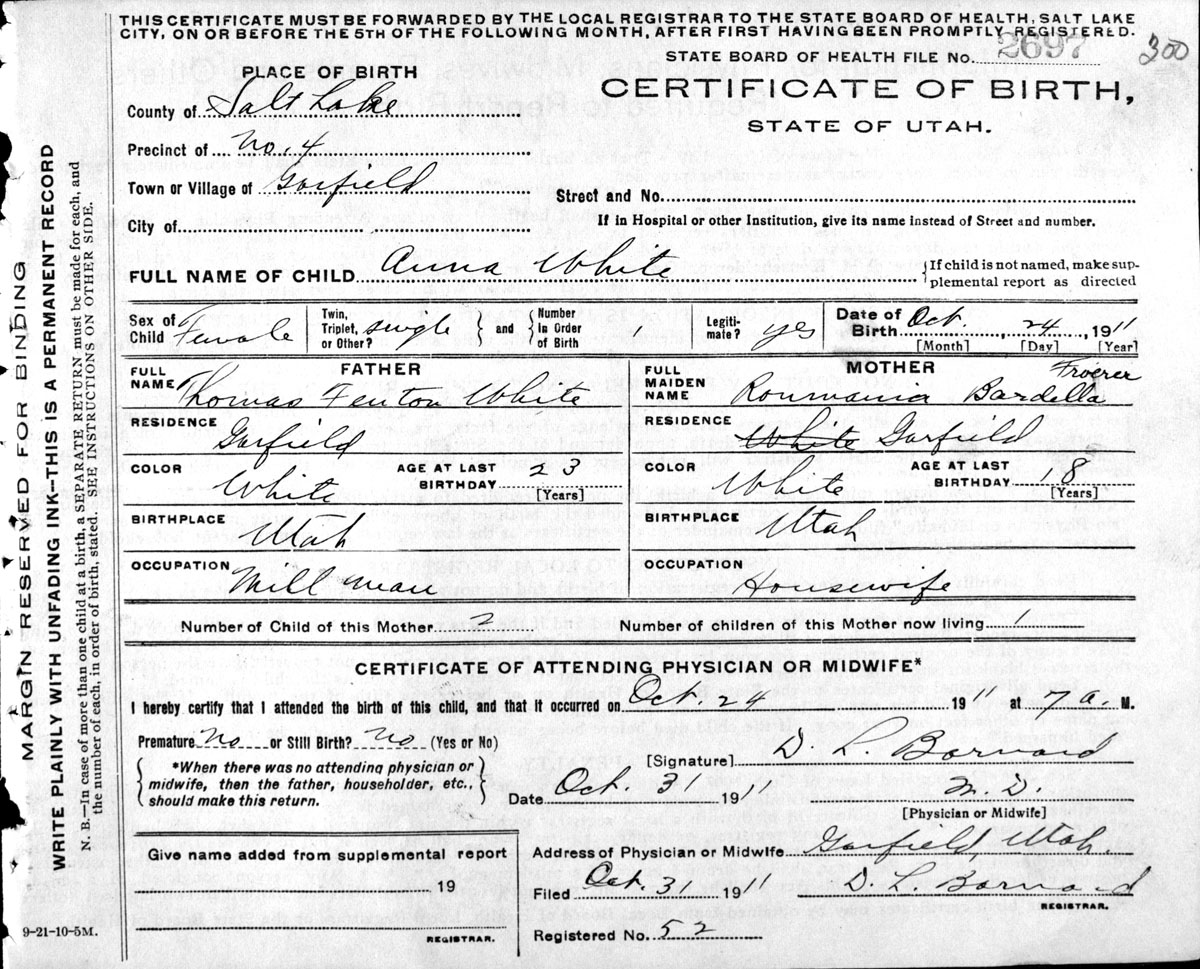 THIS CERTIFICATE MUST BE FORWARDED BY THE LOCAL REGISTRAR TO THE STATE BOARD OF HEALTH, SALT LAKE
CITY, ON OR BEFORE THE 5TH OF THE FOLLOWING MONTH, AFTER FIRST HAVING BEEN PROMPTLY REGISTERED.
STATE BOARD OF HEALTH FILE No. 2697 300
PLACE OF BIRTH
CERTIFICATE OF BIRTH,
STATE OF UTAH.
County of Salt Lake
Precinct of No. 4
Town or Village of Garfield
Street and No.
City of
If in Hospital or other Institution, give its name instead of Street and number.
FULL NAME OF CHILD Anna White {If child is not named, make sup-
plemental report as directed
Sex of Child Female Twin, Triplet, or Other? single { and } Number In Order of Birth 1 Legiti-mate? yes Date of Birth Oct. 24 1911
[Month] [Day] [Year]
FATHER
FULL NAME Thomas Fenton White
RESIDENCE Garfield
COLOR White AGE AT LAST BIRTHDAY 23 [Years]
BIRTHPLACE Utah
OCCUPATION Mill man
MOTHER
FULL MAIDEN NAME Roumania Bardella Froerer
RESIDENCE White Garfield
COLOR White AGE AT LAST BIRTHDAY 18 [Years]
BIRTHPLACE Utah
OCCUPATION Housewife
Number of Child of this Mother 2 Number of children of this Mother now living 1
CERTIFICATE OF ATTENDING PHYSICIAN OR MIDWIFE*
I hereby certify that I attended the birth of this child, and that it occurred on Oct. 24 1911 at 7 a. M.
Premature No or Still Birth? No (Yes or No)
[Signature] D. L. Barnard
*When there was no attending physician or
midwife, then the father, householder, etc.,
should make this return.
Date Oct. 31 1911 M. D.
[Physician or Midwife]
Give name added from supplemental report
19
REGISTRAR.
Address of Physician or Midwife Garfield, Utah.
Filed Oct. 31 1911 D. L. Barnard
REGISTRAR.
Registered No. 52
9-21-10-5M.
MARGIN RESERVED FOR BINDING
WRITE PLAINLY WITH UNFADING INK—THIS IS A PERMANENT RECORD
N. B.—In case of more than one child at a birth, a SEPARATE RETURN must be made for each, and
the number of each, in order of birth, stated. SEE INSTRUCTIONS ON OTHER SIDE.